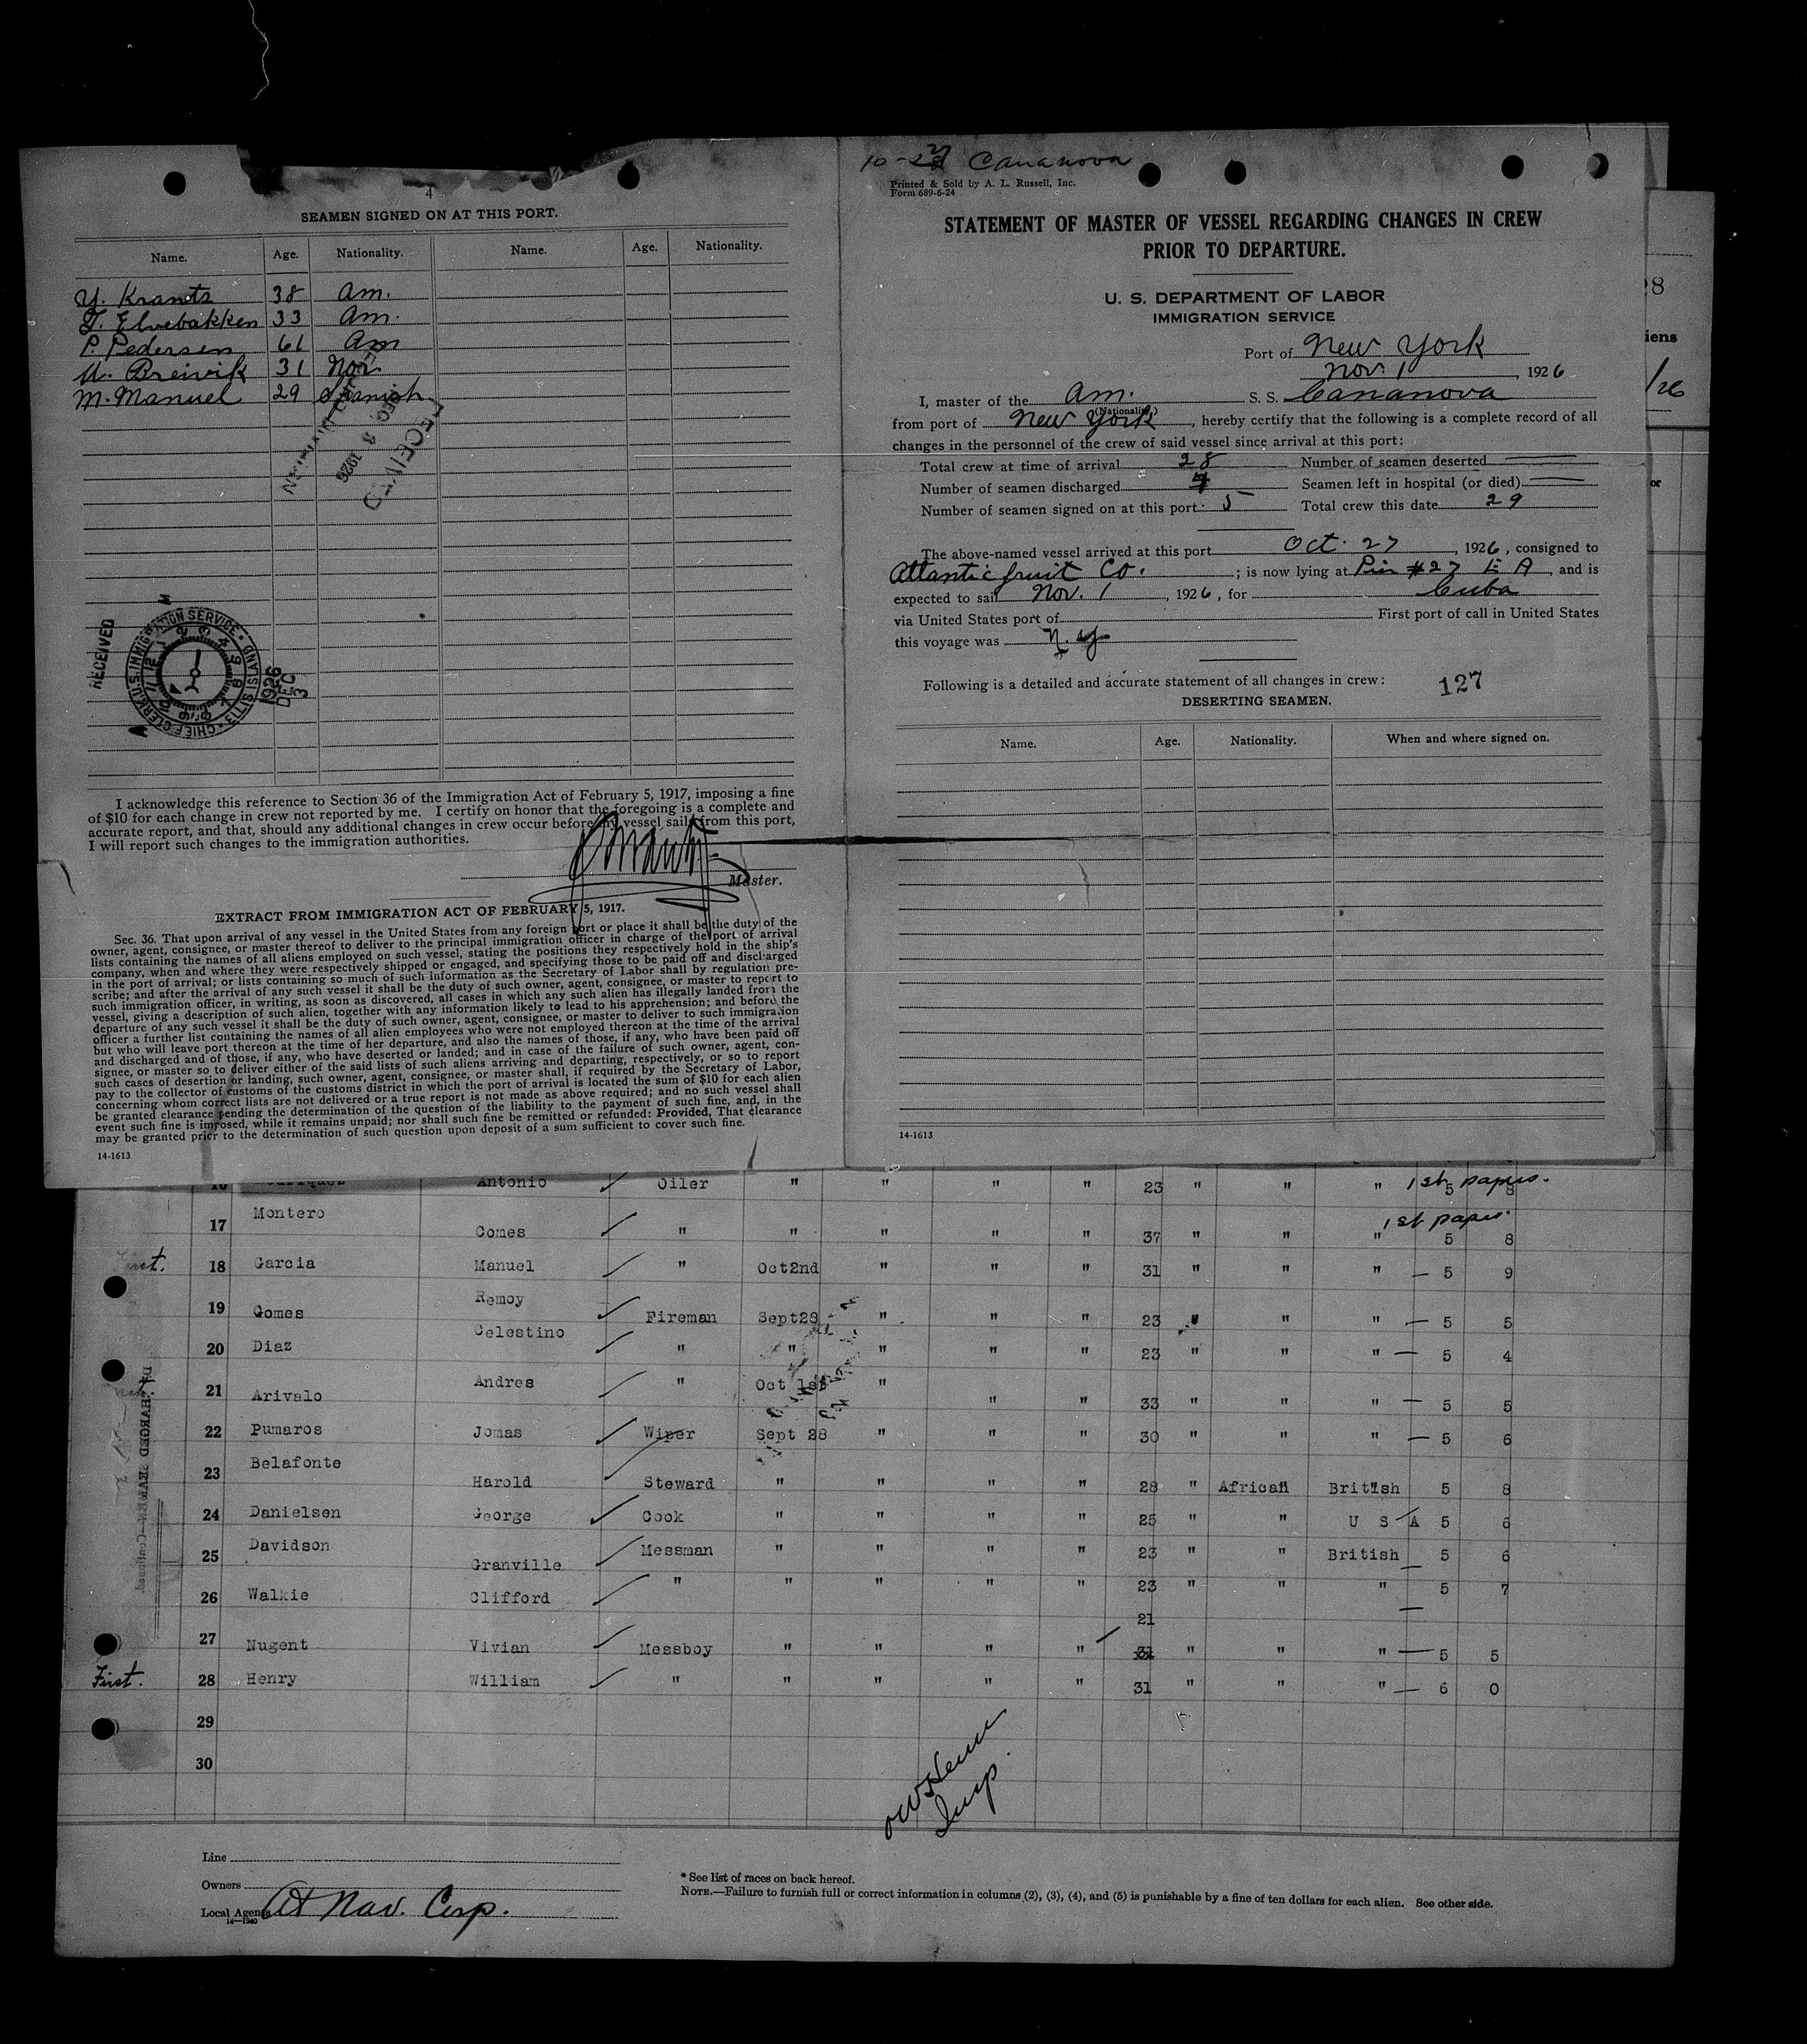 4
SEAMEN SIGNED ON AT THIS PORT.
Name. Age. Nationality. Name. Age. Nationality.
Y. Krants 38 Am.
T. Elvebakken 33 Am.
P. Pedersen 61 Am
M. Breivik 31 Nor.
M. Manuel 29 Spanish
RECEIVED
DEC 3 1926
RECEIVED
CHIEF CLERK U.S. IMMIGRATION SERVICE · ELLIS ISLAND
1926
DEC
3
I acknowledge this reference to Section 36 of the Immigration Act of February 5, 1917, imposing a fine
of $10 for each change in crew not reported by me. I certify on honor that the foregoing is a complete and
accurate report, and that, should any additional changes in crew occur before my vessel sails from this port,
I will report such changes to the immigration authorities.
Master.
EXTRACT FROM IMMIGRATION ACT OF FEBRUARY 5, 1917.
Sec. 36. That upon arrival of any vessel in the United States from any foreign port or place it shall be the duty of the
owner, agent, consignee, or master thereof to deliver to the principal immigration officer in charge of the port of arrival
lists containing the names of all aliens employed on such vessel, stating the positions they respectively hold in the ship's
company, when and where they were respectively shipped or engaged, and specifying those to be paid off and discharged
in the port of arrival; or lists containing so much of such information as the Secretary of Labor shall by regulation pre-
scribe; and after the arrival of any such vessel it shall be the duty of such owner, agent, consignee, or master to report to
such immigration officer, in writing, as soon as discovered, all cases in which any such alien has illegally landed from the
vessel, giving a description of such alien, together with any information likely to lead to his apprehension; and before the
departure of any such vessel it shall be the duty of such owner, agent, consignee, or master to deliver to such immigration
officer a further list containing the names of all alien employees who were not employed thereon at the time of the arrival
but who will leave port thereon at the time of her departure, and also the names of those, if any, who have been paid off
and discharged and of those, if any, who have deserted or landed; and in case of the failure of such owner, agent, con-
signee, or master so to deliver either of the said lists of such aliens arriving and departing, respectively, or so to report
such cases of desertion or landing, such owner, agent, consignee, or master shall, if required by the Secretary of Labor,
pay to the collector of customs of the customs district in which the port of arrival is located the sum of $10 for each alien
concerning whom correct lists are not delivered or a true report is not made as above required; and no such vessel shall
be granted clearance pending the determination of the question of the liability to the payment of such fine, and, in the
event such fine is imposed, while it remains unpaid; nor shall such fine be remitted or refunded: Provided, That clearance
may be granted prior to the determination of such question upon deposit of a sum sufficient to cover such fine.
14-1613
Cananova
Printed & Sold by A. L. Russell, Inc.
Form 689-6-24
STATEMENT OF MASTER OF VESSEL REGARDING CHANGES IN CREW
PRIOR TO DEPARTURE.
U. S. DEPARTMENT OF LABOR
IMMIGRATION SERVICE
Port of New York
Nov. 1, 1926
I, master of the Am. S. S. Cananova
(Nationality)
from port of New York, hereby certify that the following is a complete record of all
changes in the personnel of the crew of said vessel since arrival at this port:
Total crew at time of arrival 28 Number of seamen deserted
Number of seamen discharged 4 Seamen left in hospital (or died)
Number of seamen signed on at this port 5 Total crew this date 29
The above-named vessel arrived at this port Oct. 27, 1926, consigned to
Atlantic fruit Co. ; is now lying at Pier #27 E A, and is
expected to sail Nov. 1, 1926, for Cuba
via United States port of First port of call in United States
this voyage was N.Y
Following is a detailed and accurate statement of all changes in crew: 127
DESERTING SEAMEN.
Name. Age. Nationality. When and where signed on.
14-1613
28
iens
/26
or
Antonio Oiler " " " " 23 " " " 1st papers. 5 8
17 Montero Gomes " " " " " 37 " " " 1st papers. 5 8
18 Garcia Manuel " Oct2nd " " " 31 " " " 5 9
19 Gomes Remoy Fireman Sept28 " " " 23 " " " 5 5
20 Diaz Celestino " " " " " 23 " " " 5 4
21 Arivalo Andres " Oct 1st " " " 33 " " " 5 5
22 Pumaros Jomas Wiper Sept 28 " " " 30 " " " 5 6
23 Belafonte Harold Steward " " " " 28 " African British 5 8
24 Danielsen George Cook " " " " 25 " " U S A 5 6
25 Davidson Granville Messman " " " " 23 " " British 5 6
26 Walkie Clifford " " " " " 23 " " " 5 7
21
27 Nugent Vivian Messboy " " " " 31 " " " 5 5
First. 28 Henry William " " " " " 31 " " " 6 0
29
30
DISCHARGED SEAMEN—Continued.
Insp.
Line
Owners
Local Agents At Nav. Corp.
14—1240
* See list of races on back hereof.
NOTE.—Failure to furnish full or correct information in columns (2), (3), (4), and (5) is punishable by a fine of ten dollars for each alien. See other side.